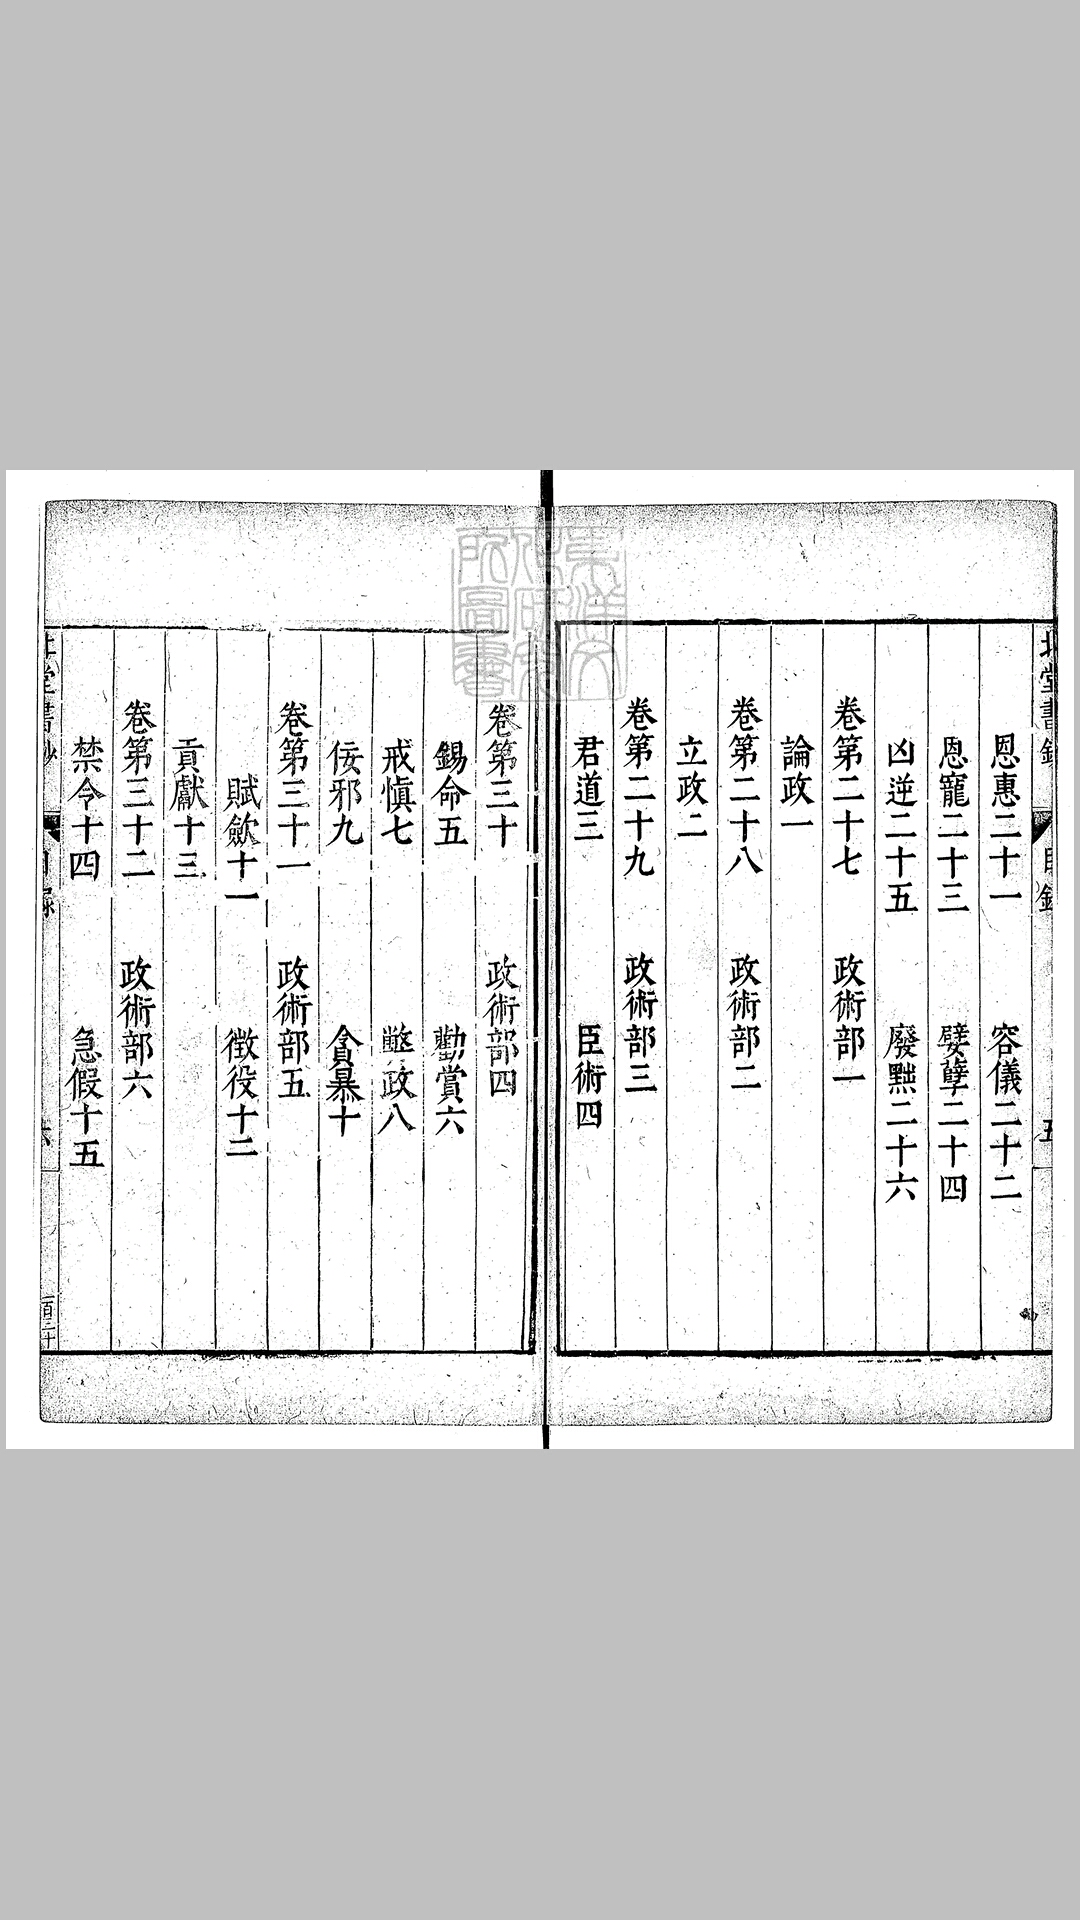 恩惠二十一　容儀二十二
恩寵二十三　嬖孽二十四
凶逆二十五　廢黜二十六
卷第二十七　政術部一
論政一
卷第二十八　政術部二
立政二
卷第二十九　政術部三
君道三　臣術四
卷第三十　政術部四
錫命五　勸賞六
戒慎七　政八
佞邪九　貪暴十
卷第三十一　政術部五
賦斂十一　徵役十二
貢獻十三
卷第三十二　政術部六
禁令十四　急假十五